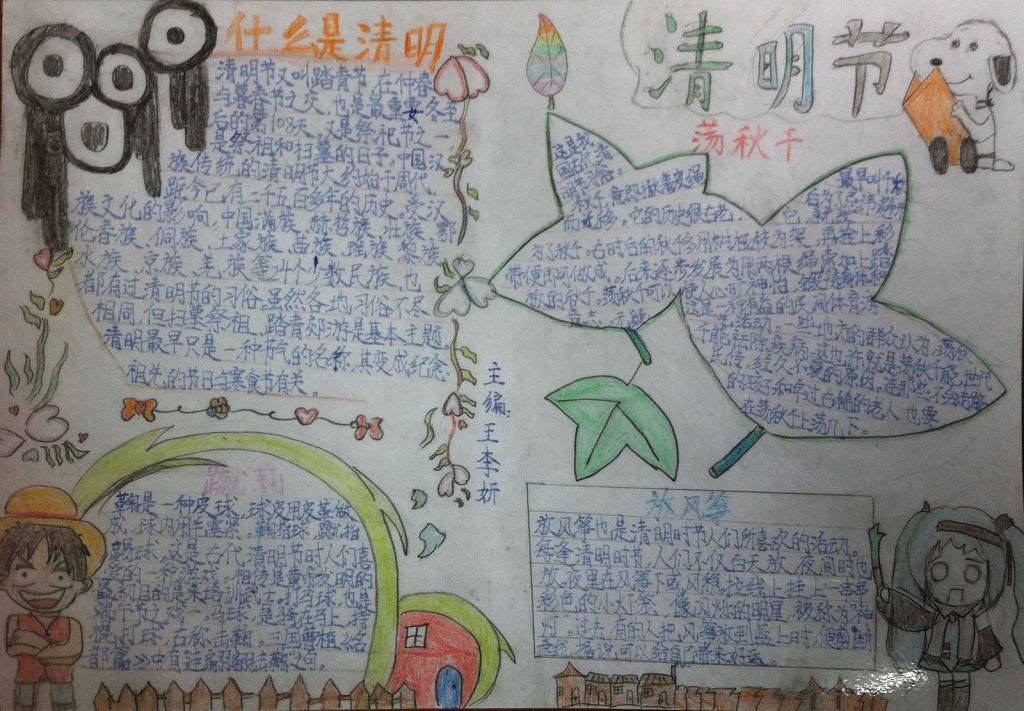 什么是清明
清明节又叫踏青节,在仲春
与暮春节之交,也是最重女冬至
后的第108天。又是祭祀节之一
是祭祖和扫墓的日子,中国汉
族传统的清明节大约始于周代,
距今已有二千五百多年的历史。受汉
族文化的影响,中国满族、赫哲族、壮族、鄂
伦春族、侗族、土家族、苗族、瑶族、黎族、
水族、京族、羌族等24个少数民族,也
都有过清明节的习俗。虽然各地习俗不尽
相同,但扫墓祭祖、踏青郊游是基本主题。
清明最早只是一种节气的名称,其变成纪念
祖先的节日与寒食节有关。
清明节
荡秋千
这是我
国古代清
明节习俗。
秋千,意即揪着皮绳
而迁移。它的历史很古老,
最早叫千
后为了忌讳
为了秋千。古时后的秋千多用树桠枝为架,再拴上彩
带便即可做成。后来逐步发展为用两根绳索加上踏
板的秋千。荡秋千可以使人心
这是一种有益的民间体育
活动。一些地方的群众认为,荡秋
千能祛除疾病,这也许就是荡秋千能世代
民传,经久不衰的原因。在那些不会走路
的孩子和年过古稀的老人也要
在荡秋千上荡几下。
主编:王李妍
蹴鞠
鞠是一种皮球,球皮用皮革做
成,球内用毛塞紧。蹴鞠,就是指
踢球。这是古代清明节时人们喜
爱的一种游戏。相传是黄帝发明的
最初目的是来培训武士。打马球,也是
马球,是骑在马上,持
棍打球,古称击鞠。三国曹植《名
都篇》中有
放风筝
放风筝也是清明时节人们所喜欢的活动。
每逢清明时节,人们不仅白天放,夜间时也
放。夜里在风筝下或风稳拉线上挂上一串串
彩色的小灯笼,像闪烁的明星,被称为“神
灯”。过去,有的人把风筝放到蓝上时,便
牵线,据说可以给自己带来好运。